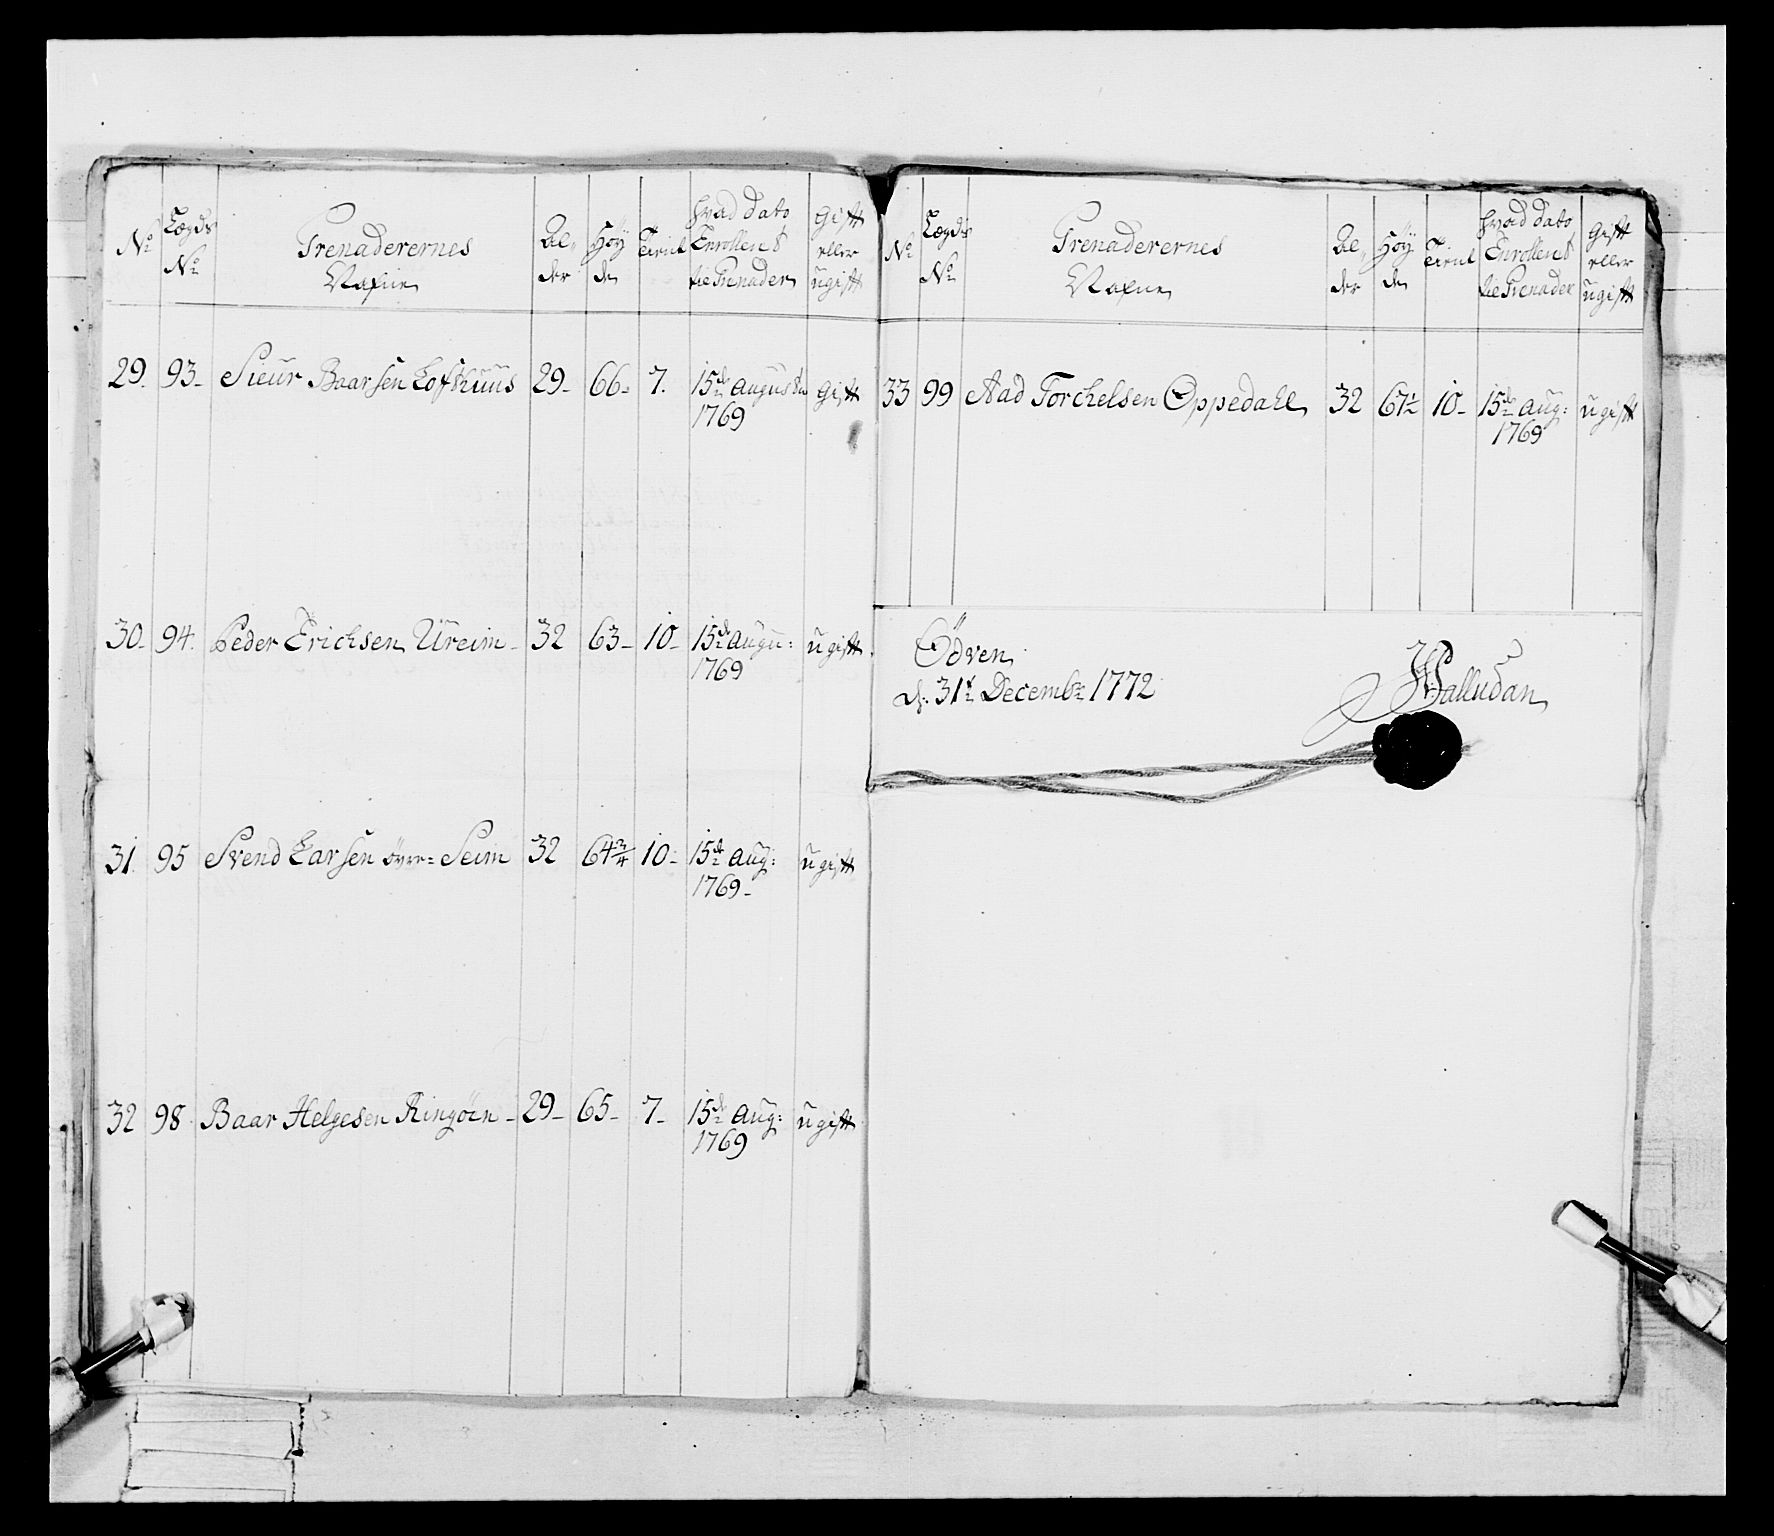 No
Lægds No
Grenaderernes Nafne
Al,, der
Høy de
Tient
Hvad dato Enrollert til Grenader
Gift eller ugift
29. 93- Siuur Baarsen Lofthuus 29- 66- 7. 15de Augusti Gift
1769
30. 94. Peder Erichsen Ureim- 32 63- 10- 15de Augu: ugift.
1769
31. 95 Svend Larsen øvre= Seim 32 64¾ 10- 15de Aug: ugift
1769-
32 98 Baar Helgesen Ringøen- 29- 65- 7- 15de Aug: ugift
1769
No
Lægds No
Grenaderernes Nafne
Al,, der
Høy de
Tient
Hvad dato Enrollert til Grenader
Gift eller ugift
33 99 Aad Torchelsen Oppedahl 32 67½ 10- 15de Aug: ugift
1769
Ödven
d: 31te Decembr 1772
Walludan